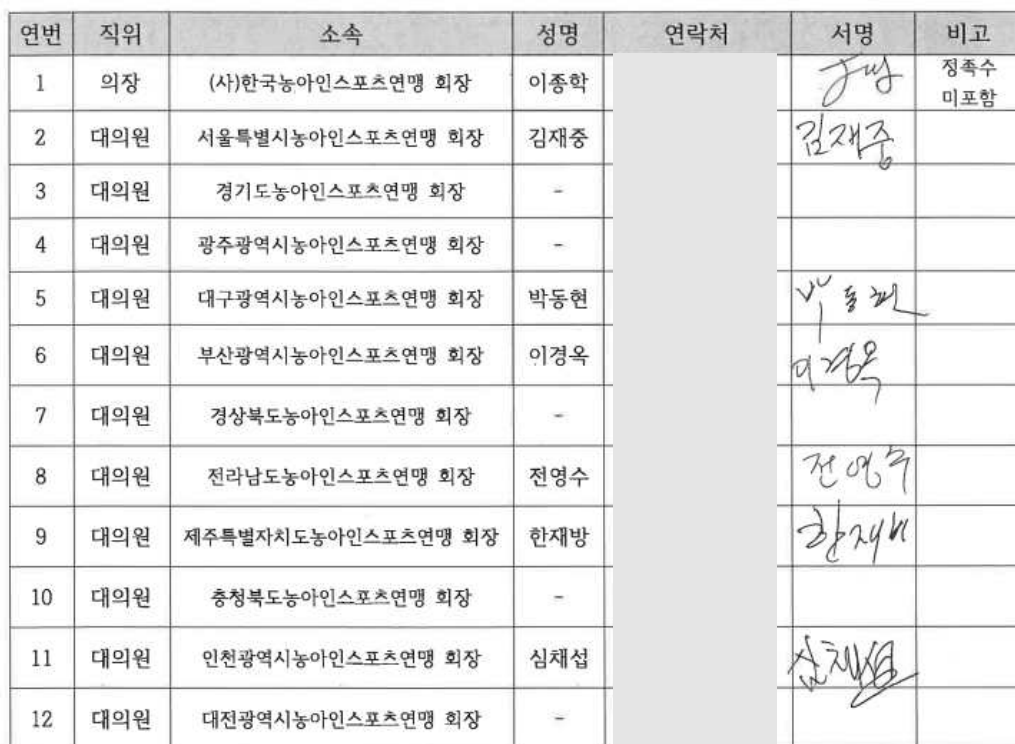 연번 직위 소속 성명 연락처 서명 비고
1 의장 (사)한국농아인스포츠연맹 회장 이종학 정족수
미포함
2 대의원 서울특별시농아인스포츠연맹 회장 김재중 김재중
3 대의원 경기도농아인스포츠연맹 회장 -
4 대의원 광주광역시농아인스포츠연맹 회장 -
5 대의원 대구광역시농아인스포츠연맹 회장 박동현 박동현
6 대의원 부산광역시농아인스포츠연맹 회장 이경옥 이경옥
7 대의원 경상북도농아인스포츠연맹 회장 -
8 대의원 전라남도농아인스포츠연맹 회장 전영수 전영수
9 대의원 제주특별자치도농아인스포츠연맹 회장 한재방
10 대의원 충청북도농아인스포츠연맹 회장 -
11 대의원 인천광역시농아인스포츠연맹 회장 심채섭 심채섭
12 대의원 대전광역시농아인스포츠연맹 회장 -